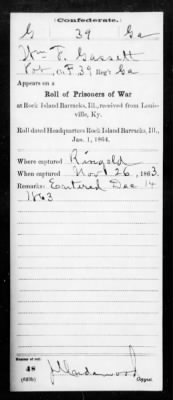 Confederate.
G 39 Ga
Wm F. Gassett
Pvt, Co. F. 39 Reg't Ga
Appears on a
Roll of Prisoners of War
at Rock Island Barracks, Ill., received from Louis-
ville, Ky.
Roll dated Headquarters Rock Island Barracks, Ill.,
Jan. 1, 1864.
Where captured Ringold
When captured Nov 26, 1863.
Remarks: Entered Dec 14
1863
Number of roll:
48
(639b) Copyist.